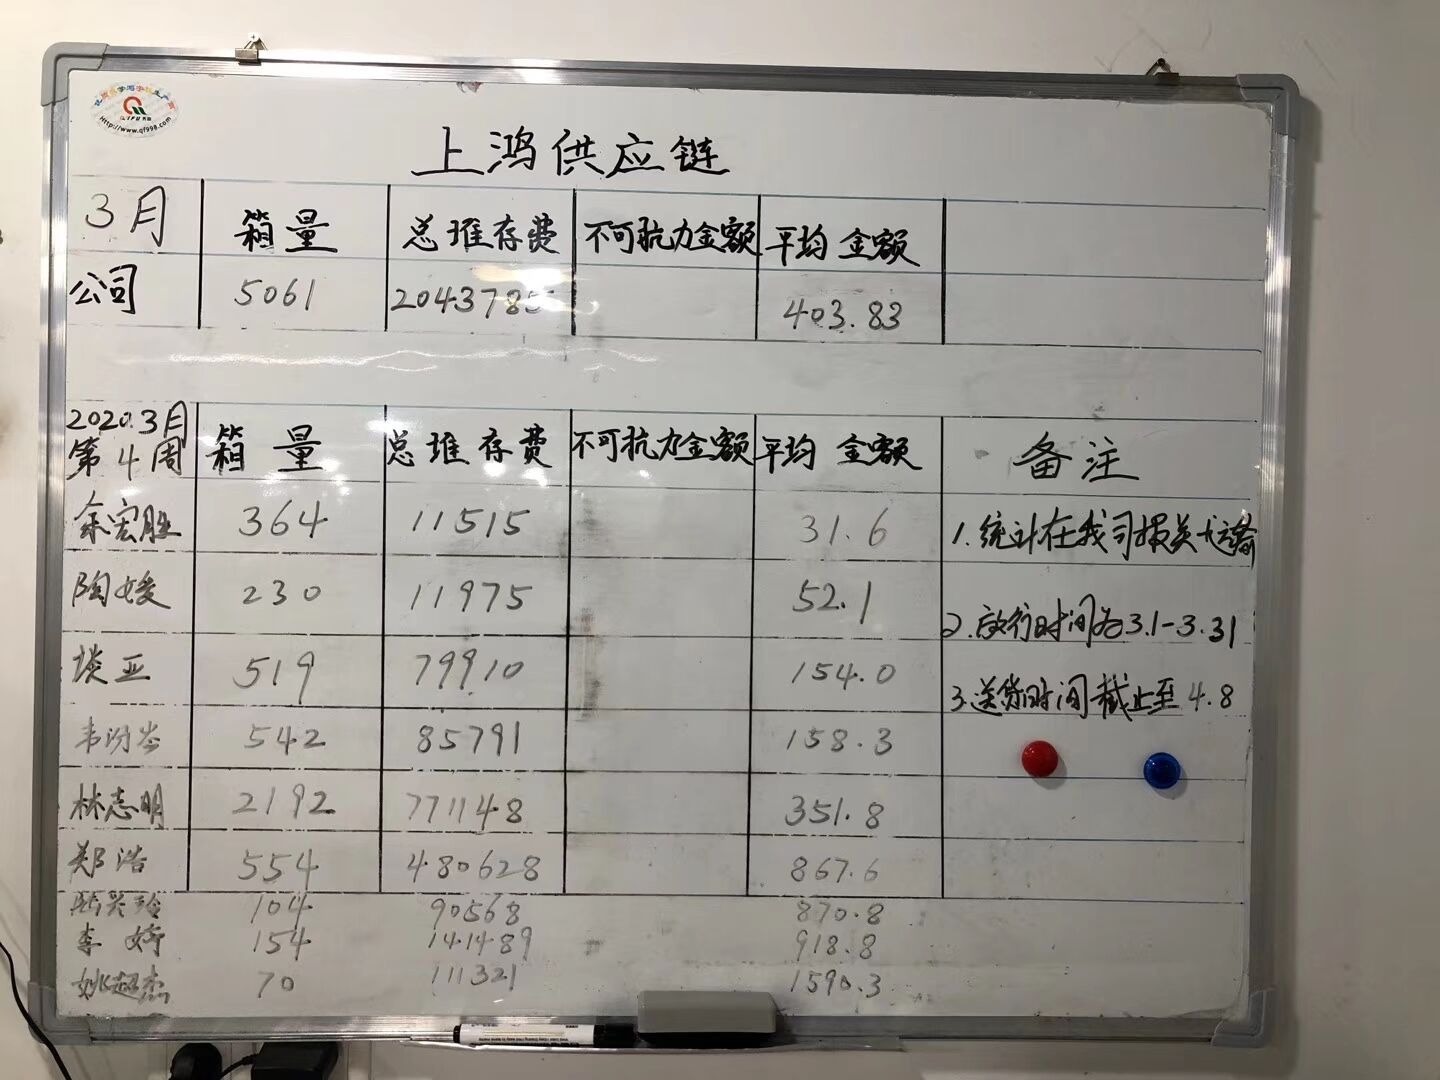 Http://www.qf998.com
上鸿供应链
3月 箱量 总堆存费 不可抗力金额 平均金额
公司 5061 2043785 403.83
2020.3月
第4周 箱量 总堆存费 不可抗力金额 平均金额 备注
余宏胜 364 11515 31.6 1.统计在我司报关+运输
陶媛 230 11975 52.1 2.放行时间为3.1-3.31
琰亚 519 79910 154.0 3.送货时间截止至4.8
542 85791 158.3
林志明 2192 771148 351.8
郑浩 554 480628 867.6
104 90568 870.8
李婷 154 141489 918.8
姚超杰 70 111321 1590.3